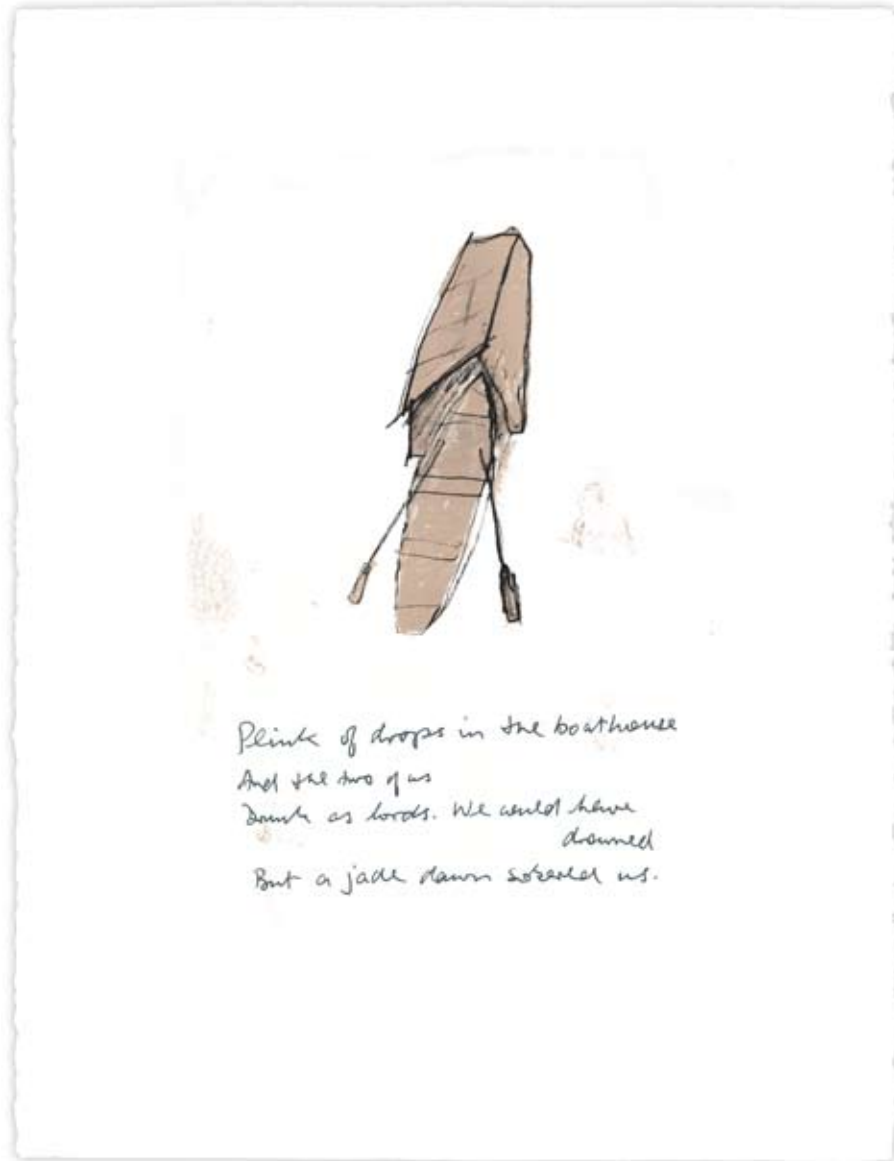 Plink of drops in the boathouse
And the two of us
Drunk as lords. We would have
drowned
But a jade dawn sobered us.